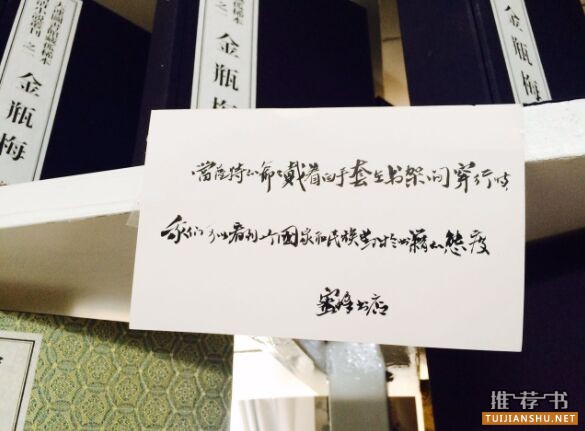 金瓶梅
金瓶梅
金瓶梅
當薩特的爺爺戴着白手套在书架间穿行时
我们可以看到一个國家和民族對於书籍的態度
蜜蜂书店
推荐书
TUIJIANSHU.NET